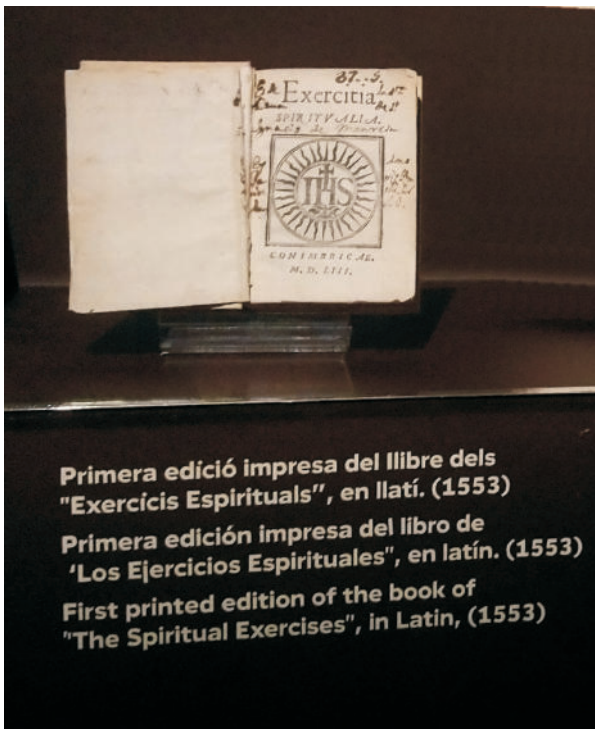 87..5.
Exercitia
SPIRITVALIA.
IHS
CONIMBRICAE.
M. D. LIII.
Primera edició impresa del llibre dels
"Exercícis Espirituals", en llatí. (1553)
Primera edición impresa del libro de
'Los Ejercicios Espirituales", en latín. (1553)
First printed edition of the book of
"The Spiritual Exercises", in Latin, (1553)